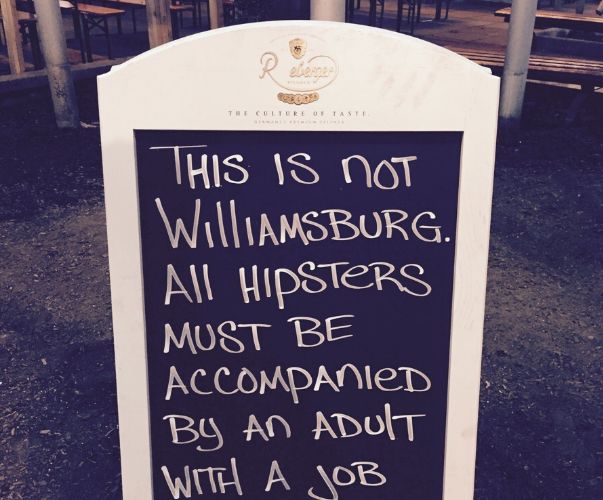 THE CULTURE OF TASTE.
THIS IS NOT
WILLIAMSBURG.
All HIPSTERS
MUST BE
ACCOMPANIED
BY AN ADULT
WITH A JOB